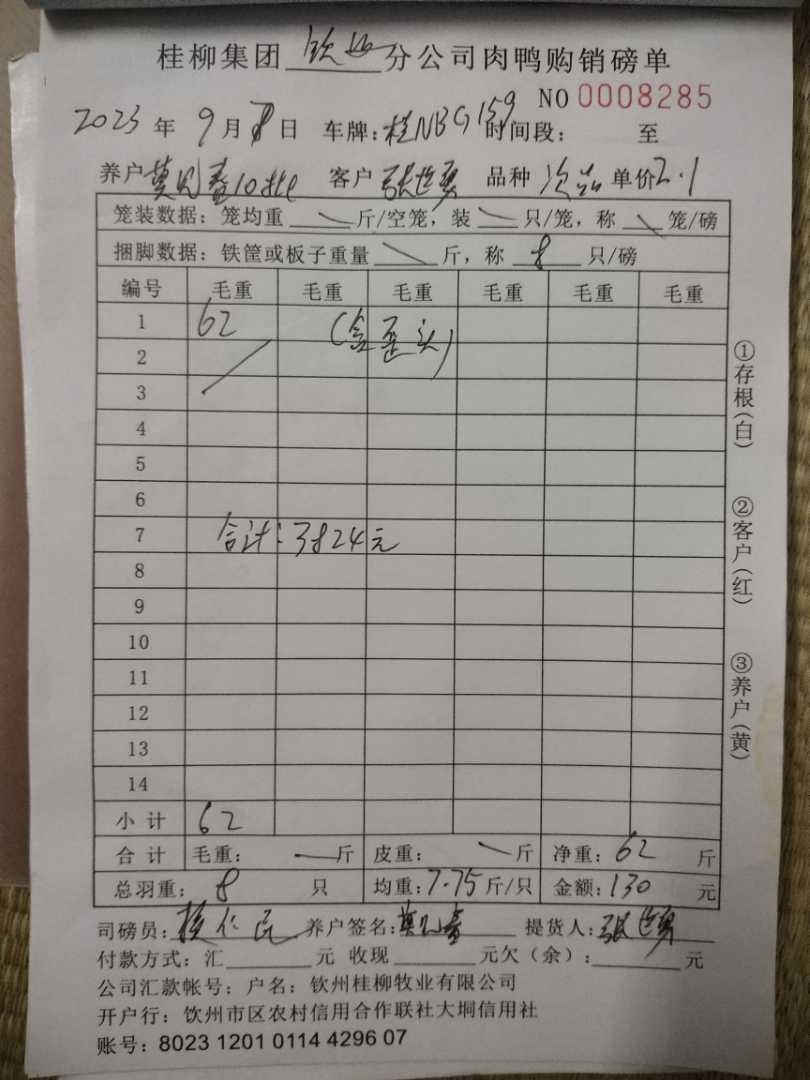 桂柳集团 钦州 分公司肉鸭购销磅单
NO 0008285
2023 年 9 月 8 日 车牌：桂NBG159 时间段： 至
养户 10批 客户 张世勇 品种 次品 单价2.1
笼装数据：笼均重 斤/空笼，装 只/笼，称 笼/磅
捆脚数据：铁筐或板子重量 斤，称 8 只/磅
编号 毛重 毛重 毛重 毛重 毛重 毛重
1 62 (含歪头)
2
3
4
5
6
7 合计：3824元
8
9
10
11
12
13
14
小 计 62
合 计 毛重： 斤 皮重： 斤 净重：62 斤
总羽重：8 只 均重：7.75 斤/只 金额：130 元
司磅员： 仁民 养户签名： 提货人：张世勇
付款方式：汇 元 收现 元欠（余）： 元
公司汇款帐号：户名：钦州桂柳牧业有限公司
开户行：钦州市区农村信用合作联社大垌信用社
账号：8023 1201 0114 4296 07
①存根(白)
②客户(红)
③养户(黄)